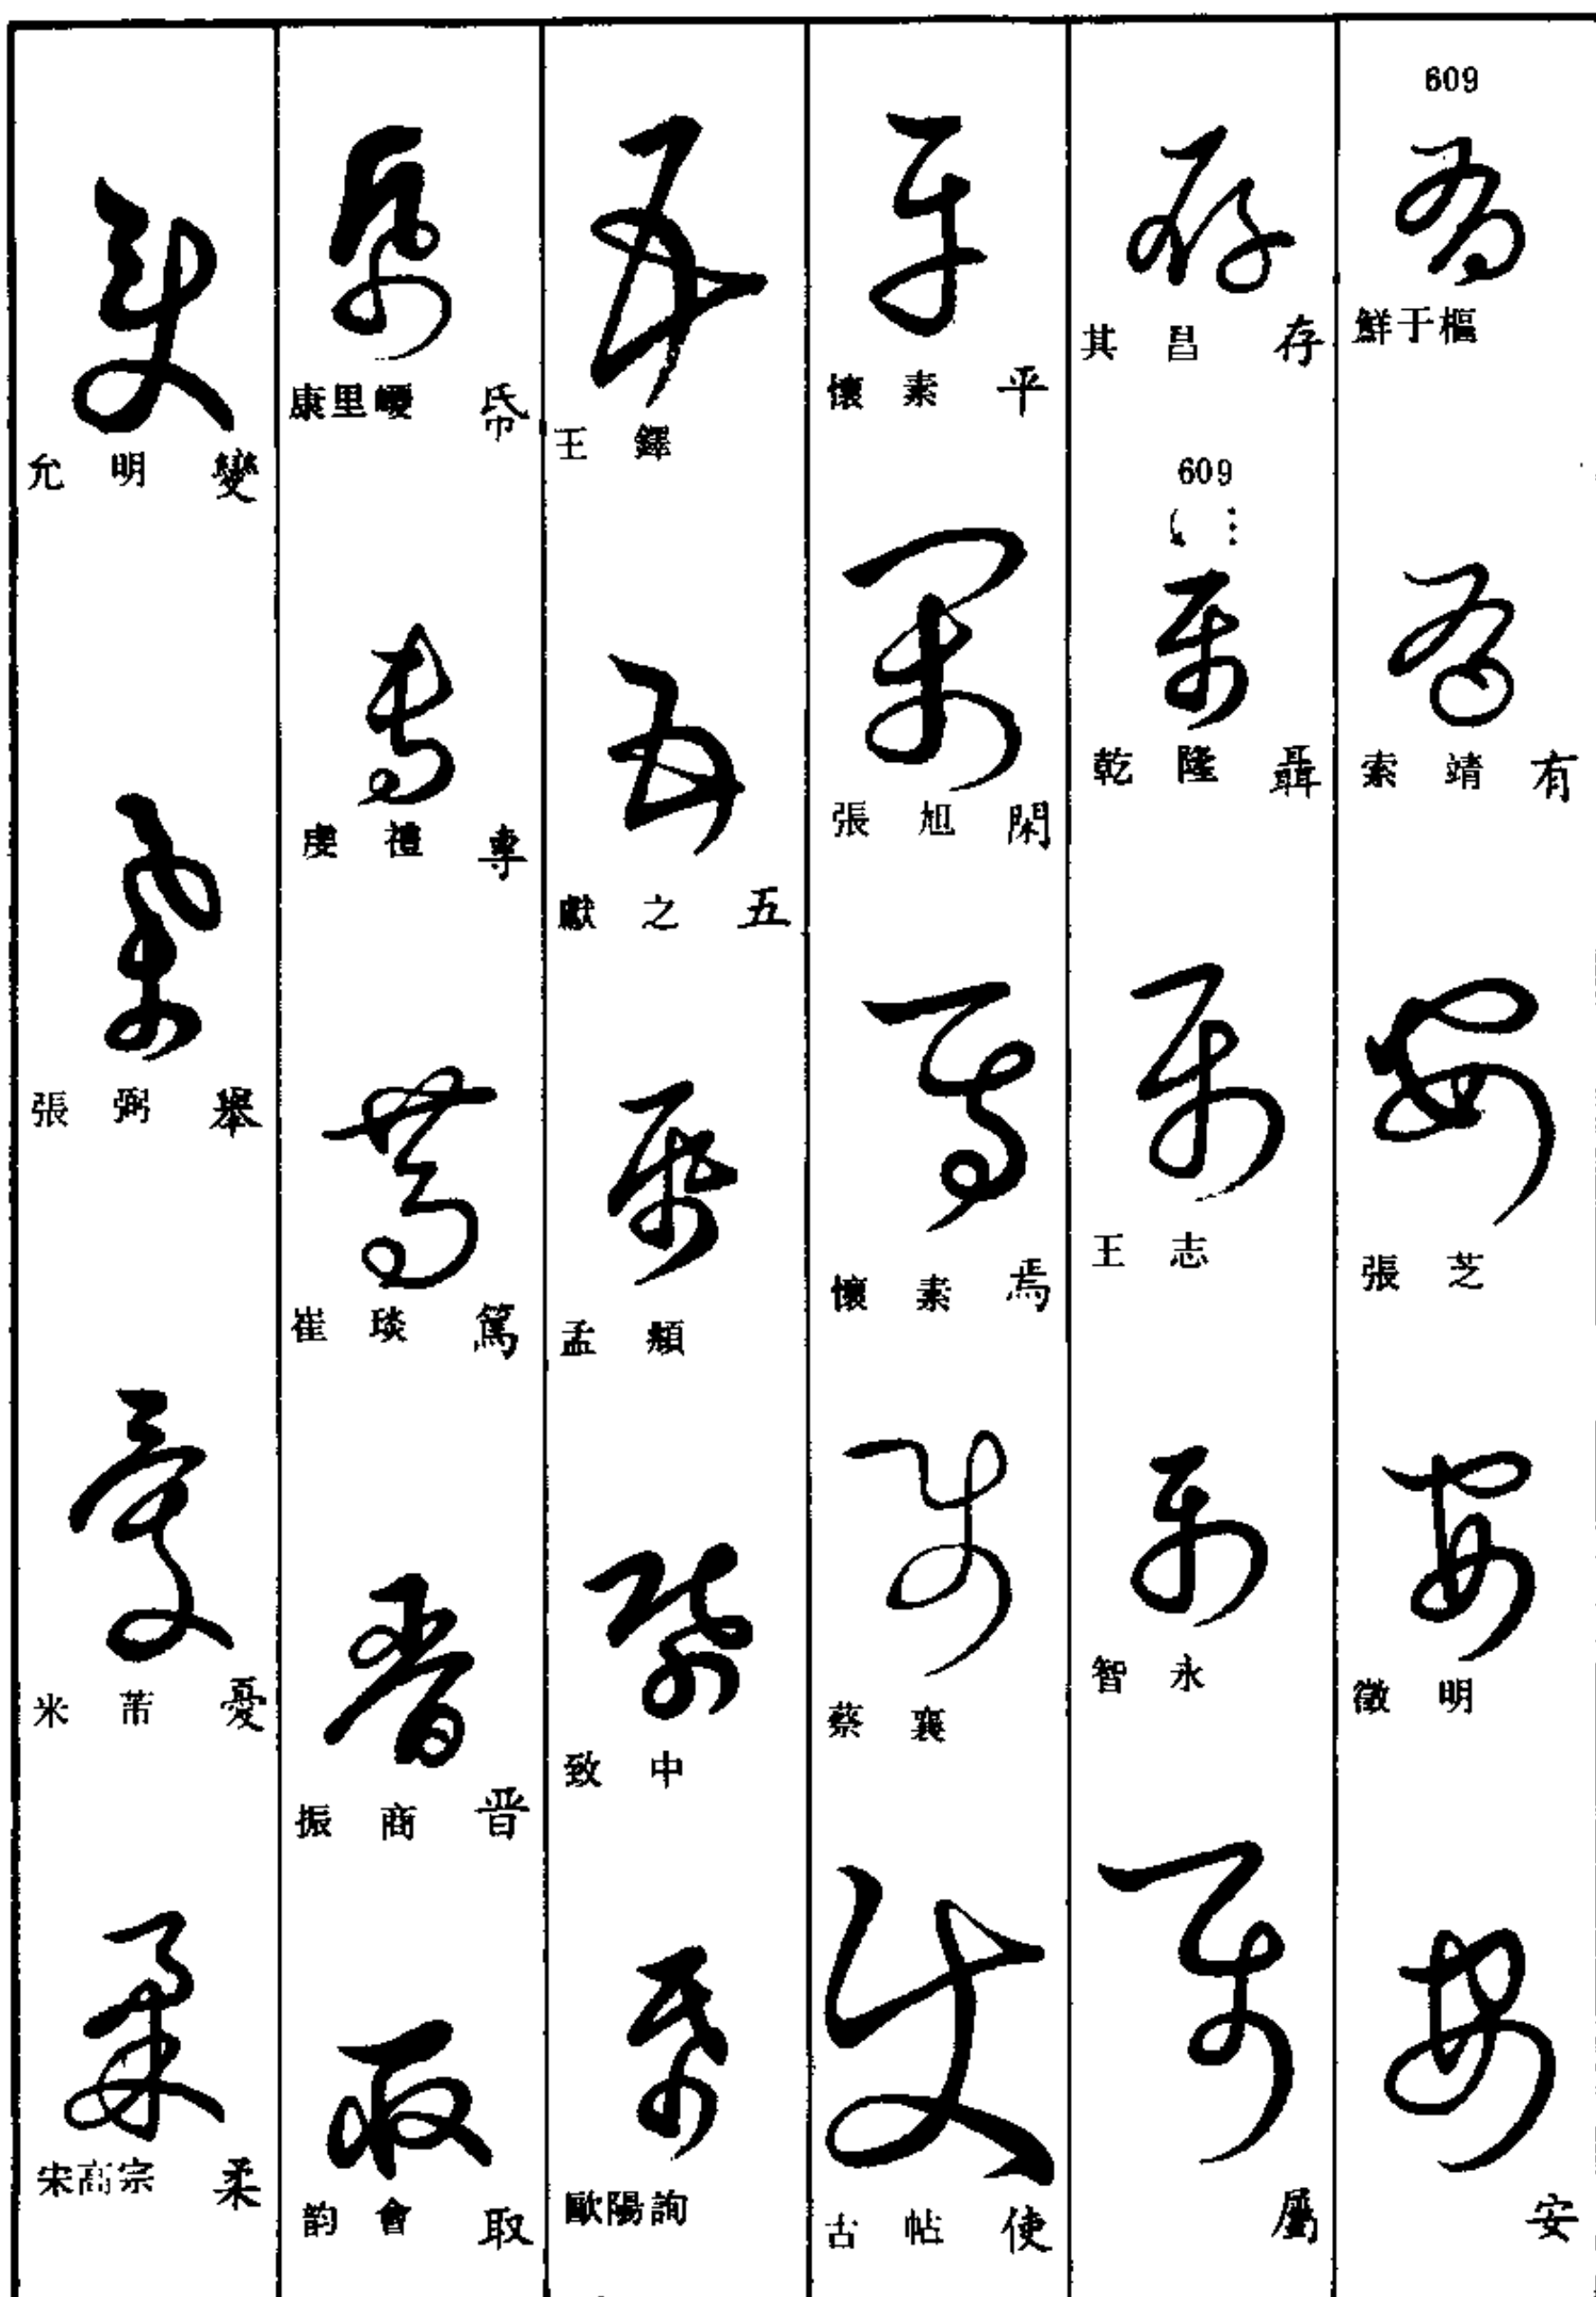 609
鮮于樞
索靖 有
張芝
徵明
安
其昌 存
609
乾隆 聶
王志
智永
屬
懷素 平
張旭 閑
懷素 焉
蔡襄
古帖 使
王鐸
獻之 五
孟頫
致中
歐陽詢
康里巙 帋
虞禮 專
崔琰 篤
振商 晋
韵會 取
允明 變
張弼
米芾 憂
宋高宗 柔